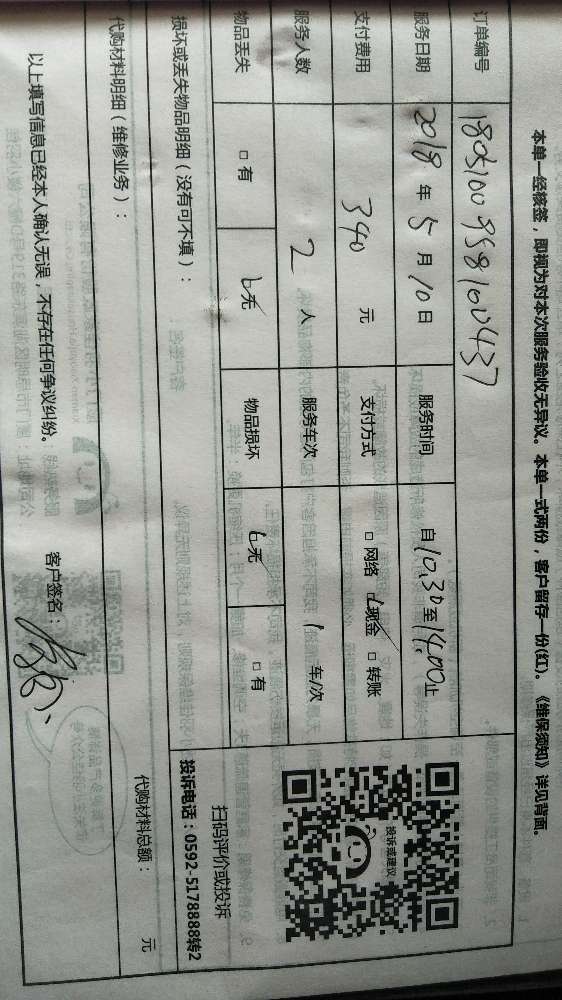 本单一经核签，即视为对本次服务验收无异议。本单一式两份，客户留存一份(红)。《维保须知》详见背面。
订单编号 1805100958100437
服务日期 2018年5月10日 服务时间 自10:30至14:00止
支付费用 340元 支付方式 □网络 ☑现金 □转账
服务人数 2人 服务车次 1车/次
物品丢失 □有 ☑无 物品损坏 ☑无 □有
投诉或建议
扫码评价或投诉
投诉电话：0592-5178888转2
损坏或丢失物品明细（没有可不填）：
代购材料明细（维修业务）： 代购材料总额： 元
以上填写信息已经本人确认无误，不存在任何争议纠纷。 客户签名：